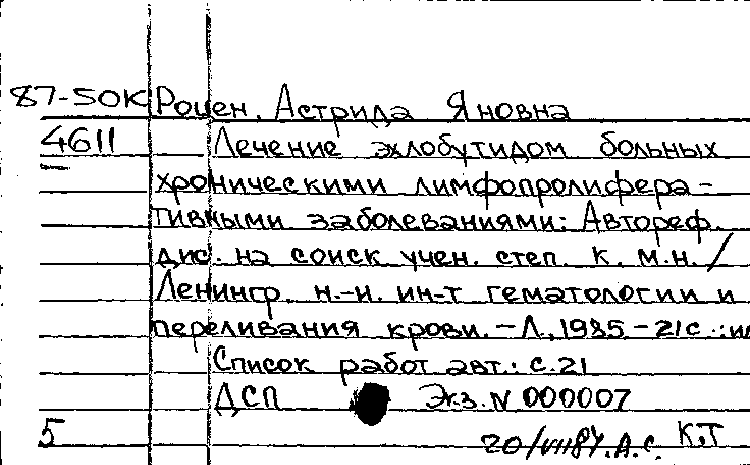 87-50К Роцен, Астрида Яновна
4611 Лечение эхлобутидом больных
хроническими лимфопролифера-
тивными заболеваниями: Автореф.
дис. на соиск учен. степ. к. м.н. /
Ленингр. н.-и. ин-т гематологии и
переливания крови. – Л., 1985. – 21 с. : ил
Список работ авт.: с. 21
ДСП Экз. N 000007
5 К,Т